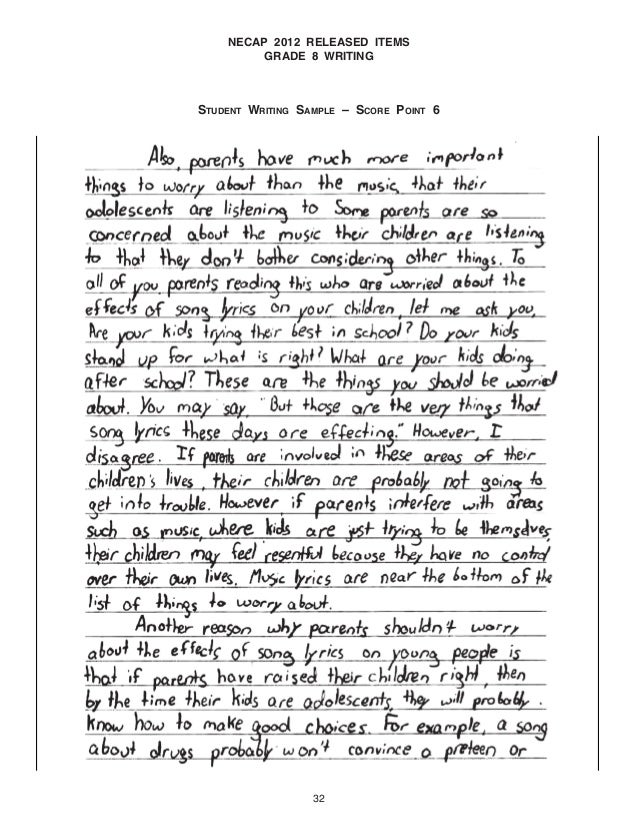 NECAP 2012 RELEASED ITEMS
GRADE 8 WRITING
STUDENT WRITING SAMPLE – SCORE POINT 6
Also, parents have much more important
things to worry about than the music that their
adolescents are listening to Some parents are so
concerned about the music their children are listening
to that they don't bother considering other things. To
all of you parents reading this who are worried about the
effects of song lyrics on your children, let me ask you,
Are your kids trying their best in school? Do your kids
stand up for what is right? What are your kids doing
after school? These are the things you should be worried
about. You may say, "But those are the very things that
song lyrics these days are effecting." However, I
disagree. If parents are involved in these areas of their
children's lives, their children are probably not going to
get into trouble. However if parents interfere with areas
such as music, where kids are just trying to be themselves,
their children may feel resentful because they have no control
over their own lives. Music lyrics are near the bottom of the
list of things to worry about.
Another reason why parents shouldn't worry
about the effects of song lyrics on young people is
that if parents have raised their children right, then
by the time their kids are adolescents, they will probably
know how to make good choices. For example, a song
about drugs probably won't convince a preteen or
32